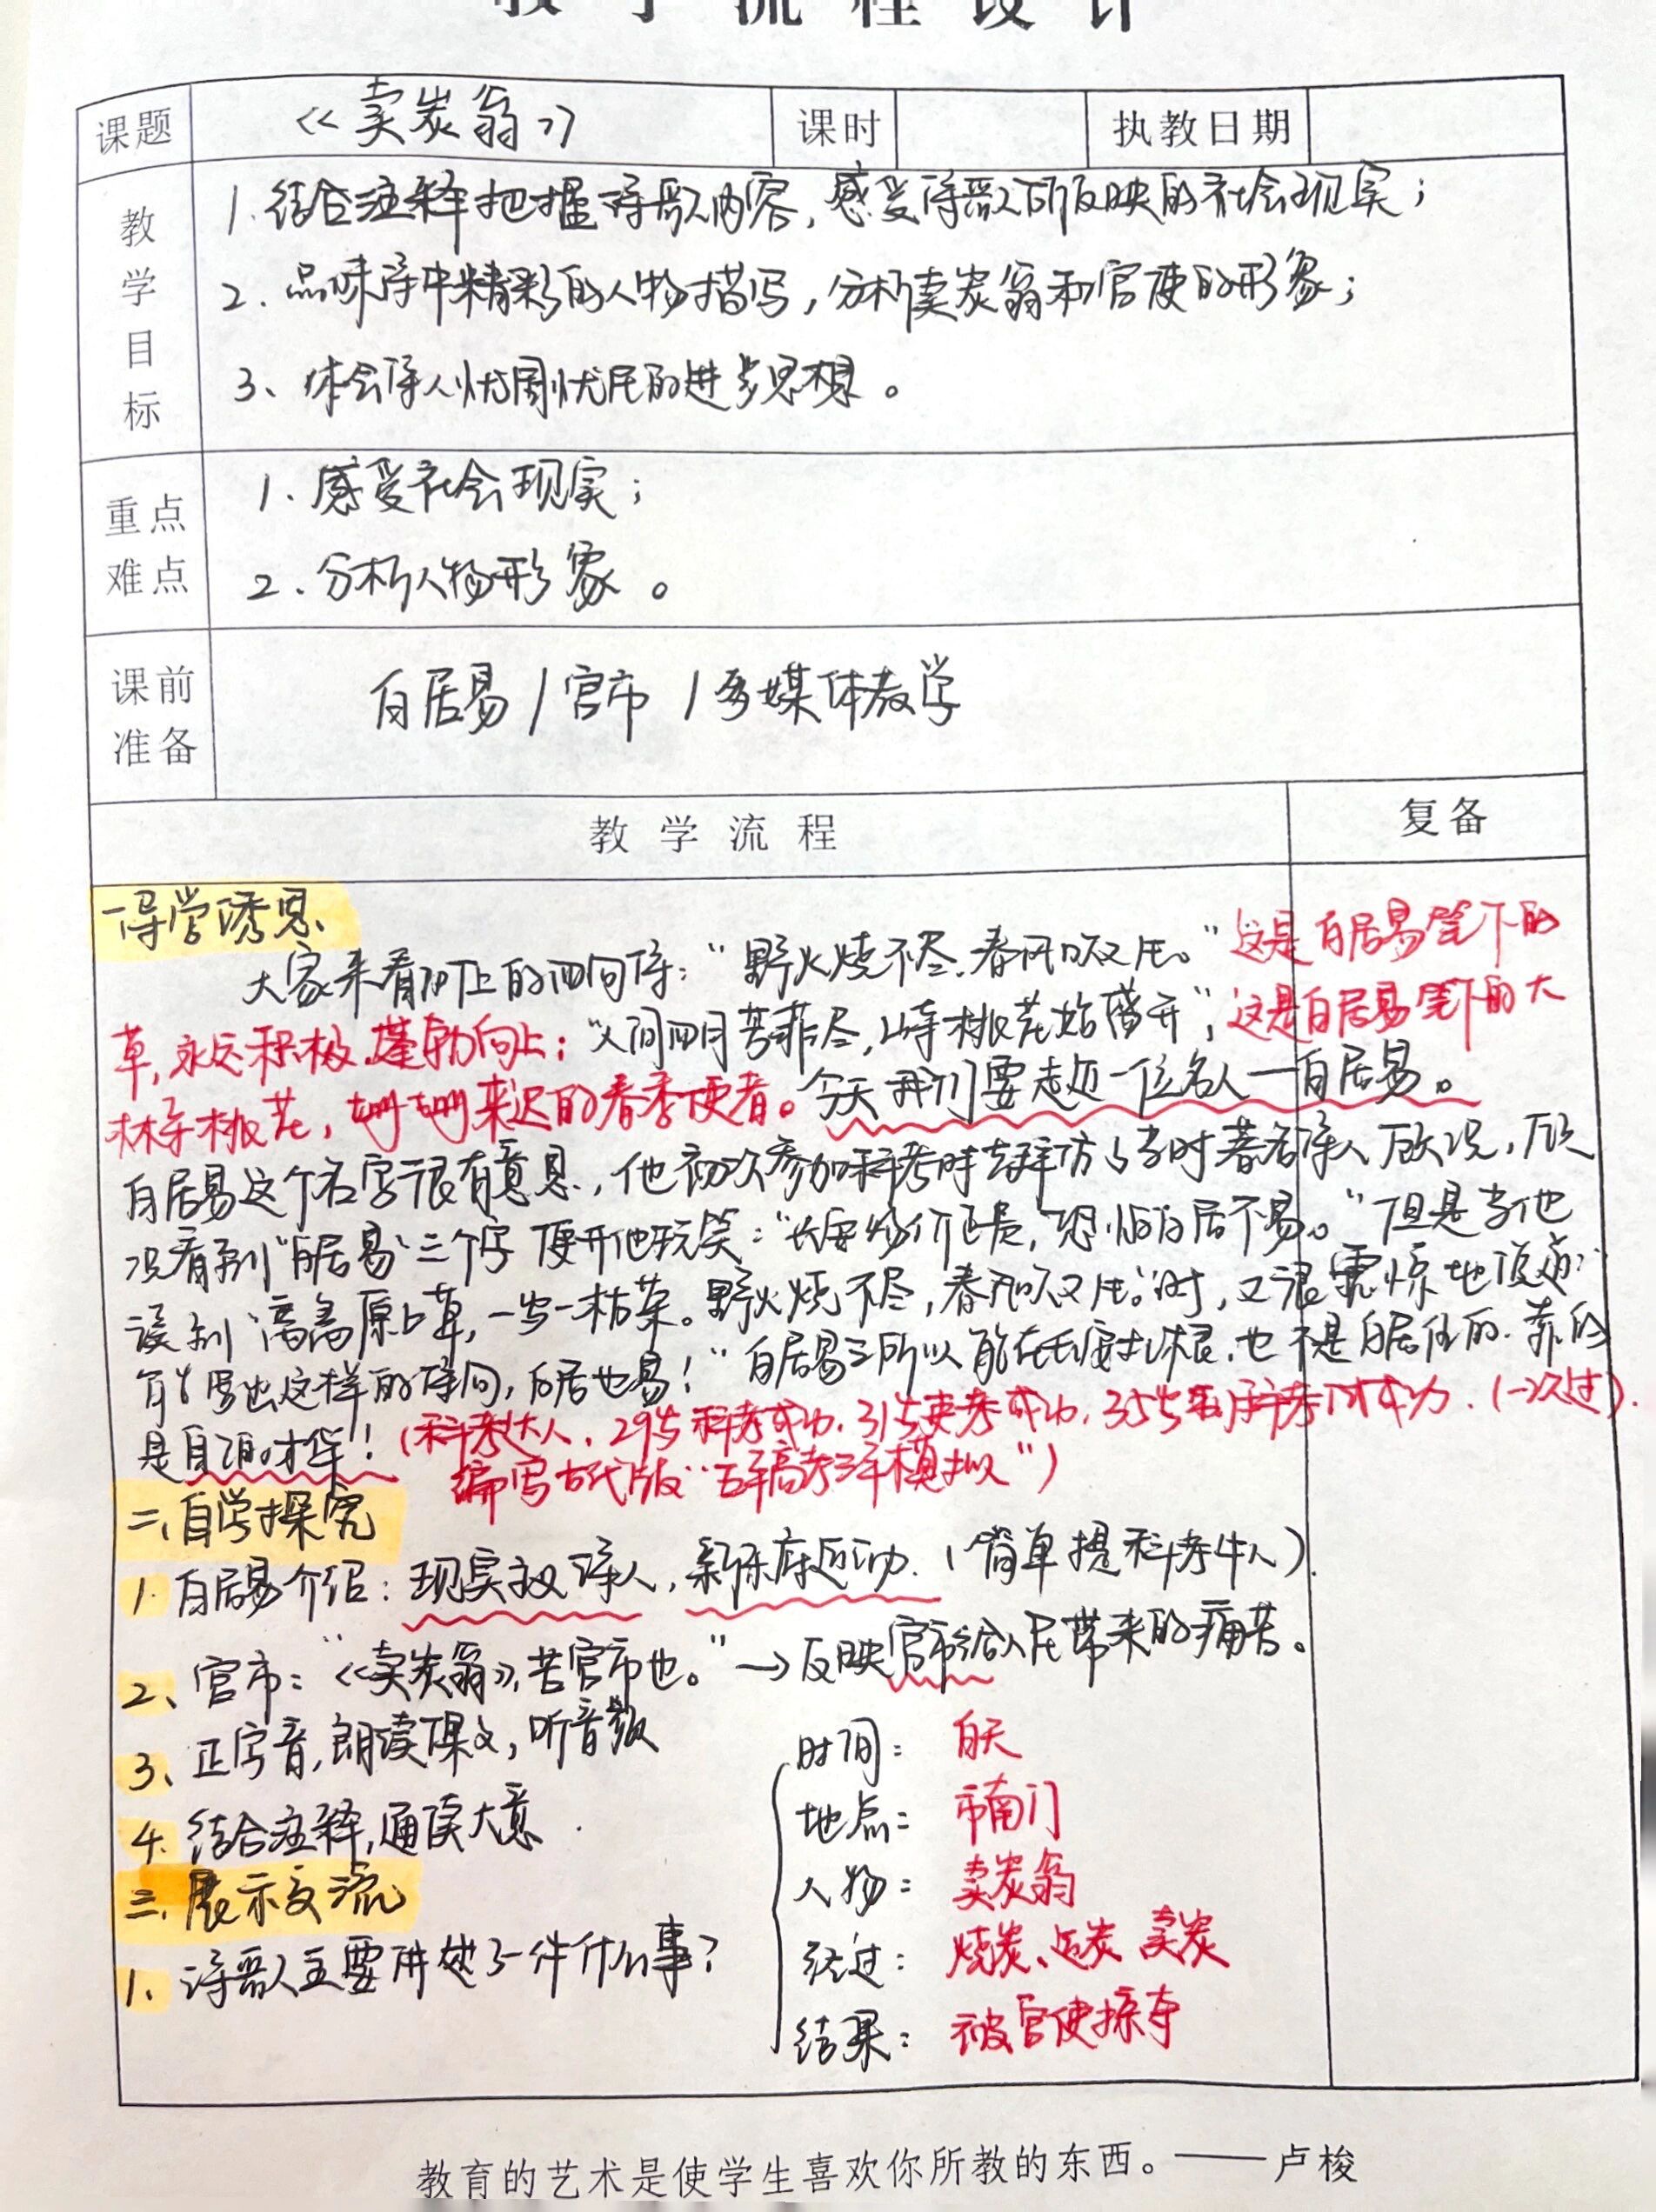 教学流程设计
课题 《卖炭翁》 课时 执教日期
教学目标
1.结合注释把握诗歌内容,感受诗歌所反映的社会现实;
2.品味诗中精彩的人物描写,分析卖炭翁和官使的形象;
3、体会诗人忧国忧民的进步思想。
重点难点
1.感受社会现实;
2.分析人物形象。
课前准备
白居易/宫市/多媒体教学
教学流程 复备
一导学诱思
大家来看的四句诗:“野火烧不尽,春风吹又生。”这是白居易笔下的
草,永远积极、蓬勃向上;“人间四月芳菲尽,山寺桃花始盛开”,这是白居易笔下的大
林寺桃花,姗姗来迟的春季使者。今天我们要走近一位名人—白居易。
白居易这个名字很有意思,他初次参加科考时去拜访了当时著名诗人顾况,顾
况看到“白居易”三个字便开他玩笑:“长安物价正贵,恐怕白居不易。”但是当他
读到“离离原上草,一岁一枯荣。野火烧不尽,春风吹又生。”时,又很震惊地说道:“
能写出这样的诗句,白居也易!”白居易之所以能在长安扎根,也不是白居住的.靠的
是自己的才华!(科考达人,29岁科考成功,31岁再考成功,35岁制科考试成功.(一次过).
编写古代版“五年高考三年模拟”)
二、自学探究
1.白居易介绍:现实主义诗人,新乐府运动.(简单提科考牛人).
2、宫市:“《卖炭翁》,苦宫市也。”→反映宫市给人民带来的痛苦。
3、正字音,朗读课文,听音频
4.结合注释,通读大意.
三.展示交流
1、诗歌主要讲述了一件什么事?
时间:白天
地点:市南门
人物:卖炭翁
经过:烧炭、运炭、卖炭
结果:被官使掠夺
教育的艺术是使学生喜欢你所教的东西。——卢梭